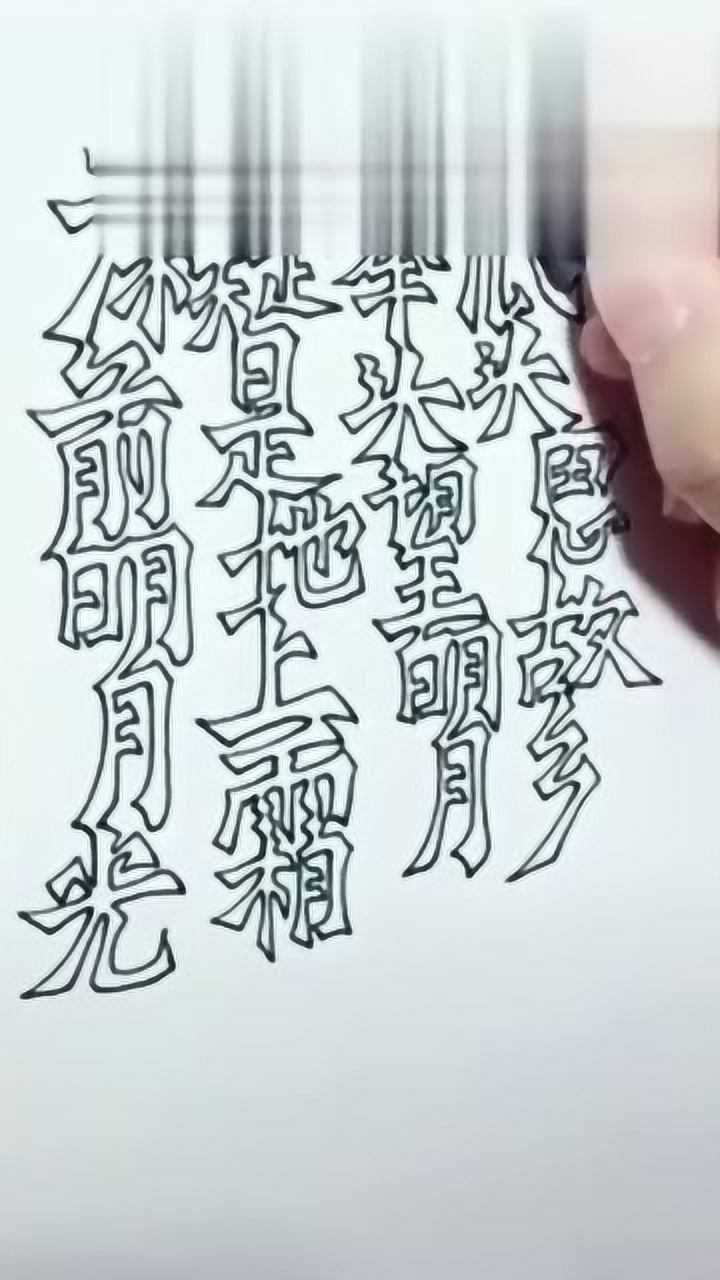 前明月光
是地上霜
头望明月
头思故乡